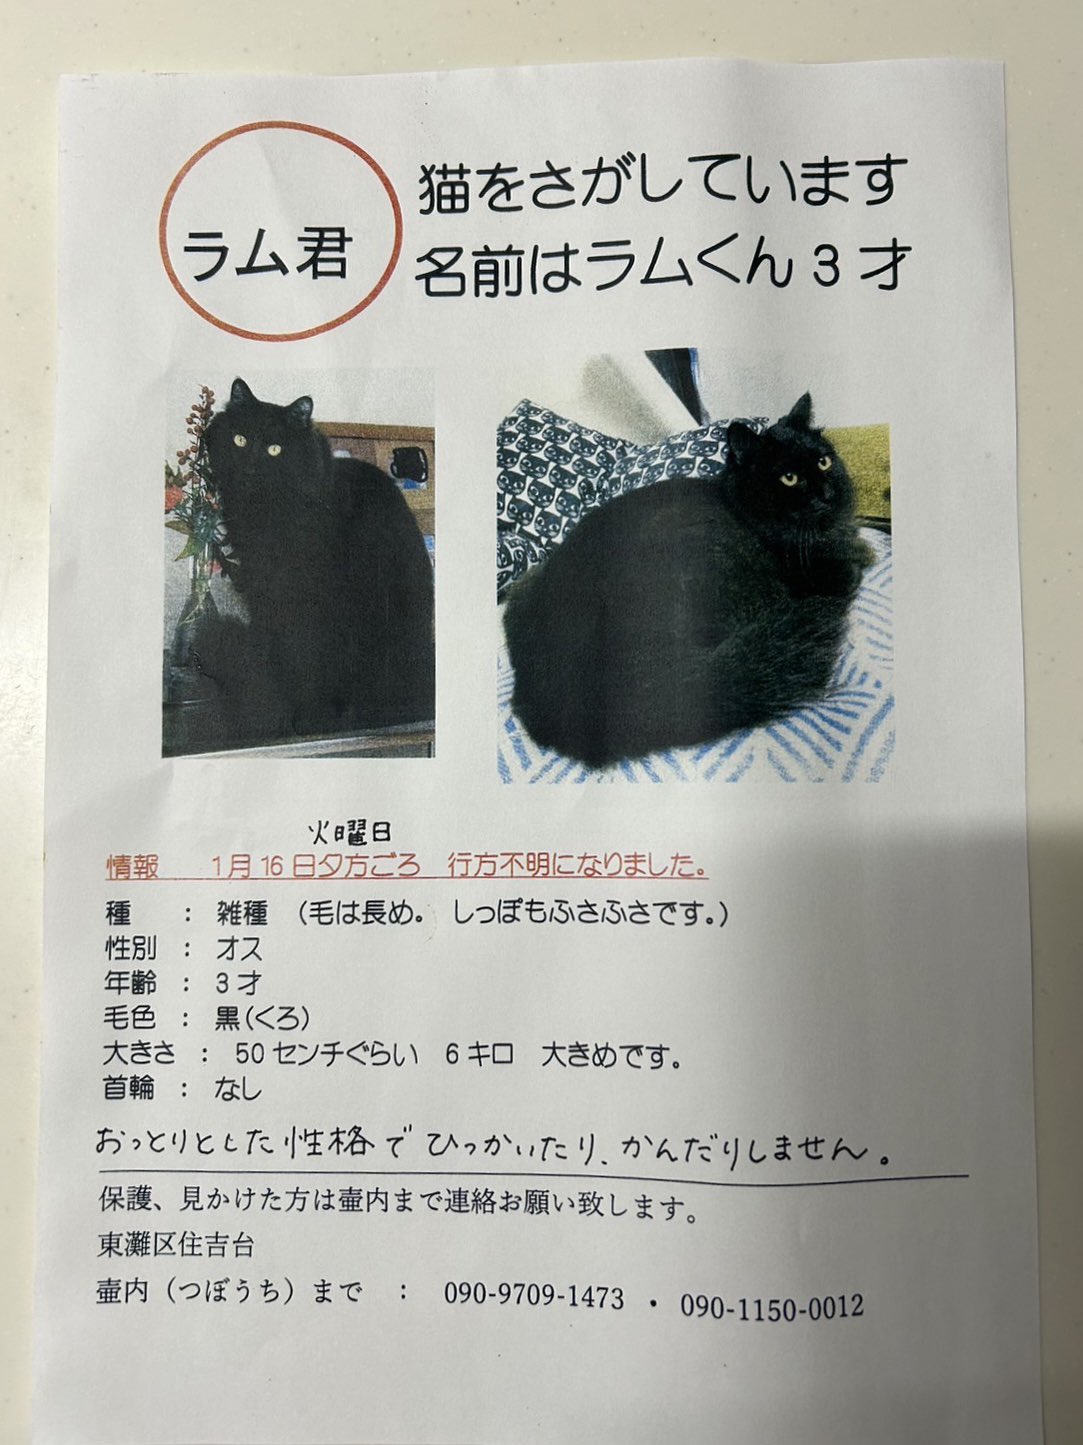 ラム君
猫をさがしています
名前はラムくん3才
火曜日
情報　1月16日夕方ごろ　行方不明になりました。
種　：　雑種　（毛は長め。　しっぽもふさふさです。）
性別　：　オス
年齢　：　3才
毛色　：　黒（くろ）
大きさ　：　50センチぐらい　6キロ　大きめです。
首輪　：　なし
おっとりとした性格でひっかいたり、かんだりしません。
保護、見かけた方は壷内まで連絡お願い致します。
東灘区住吉台
壷内（つぼうち）まで　：　090-9709-1473　・　090-1150-0012